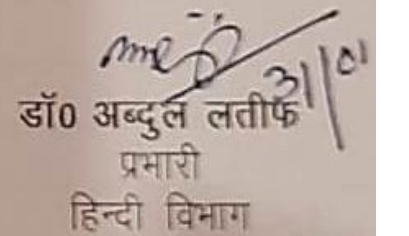 31/01
डॉ0 अब्दुल लतीफ
प्रभारी
हिन्दी विभाग